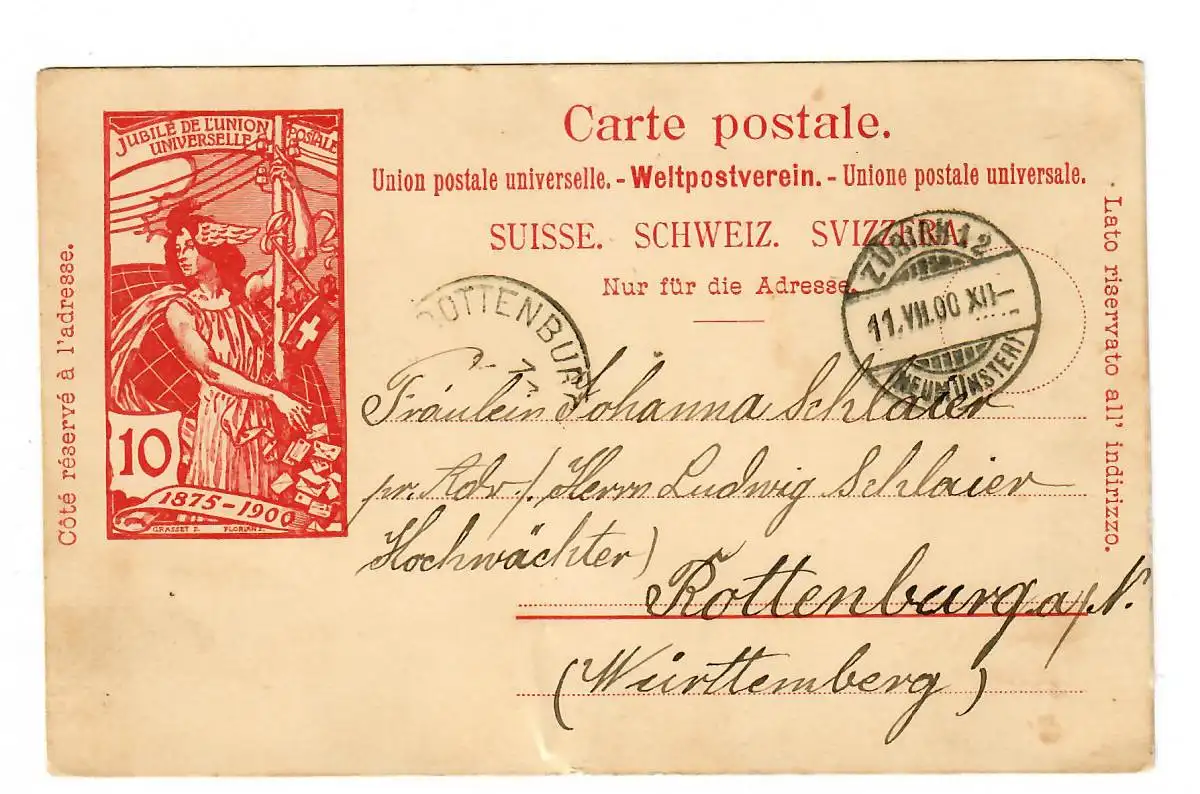 JUBILÉ DE L'UNION POSTALE
UNIVERSELLE
10
1875-1900
GRASSET
Côté réservé à l'adresse.
Carte postale.
Union postale universelle. - Weltpostverein. - Unione postale universale.
SUISSE. SCHWEIZ. SVIZZERA.
Nur für die Adresse.
Lato riservato all' indirizzo.
ROTTENBURG
ZÜRICH 12
11.VII.00 XII-
(NEUMÜNSTER)
Fräulein Johanna Schlaier
pr. Adr. /. Herrn Ludwig Schlaier
Hochwächter)
Rottenburg a/N.
(Württemberg)